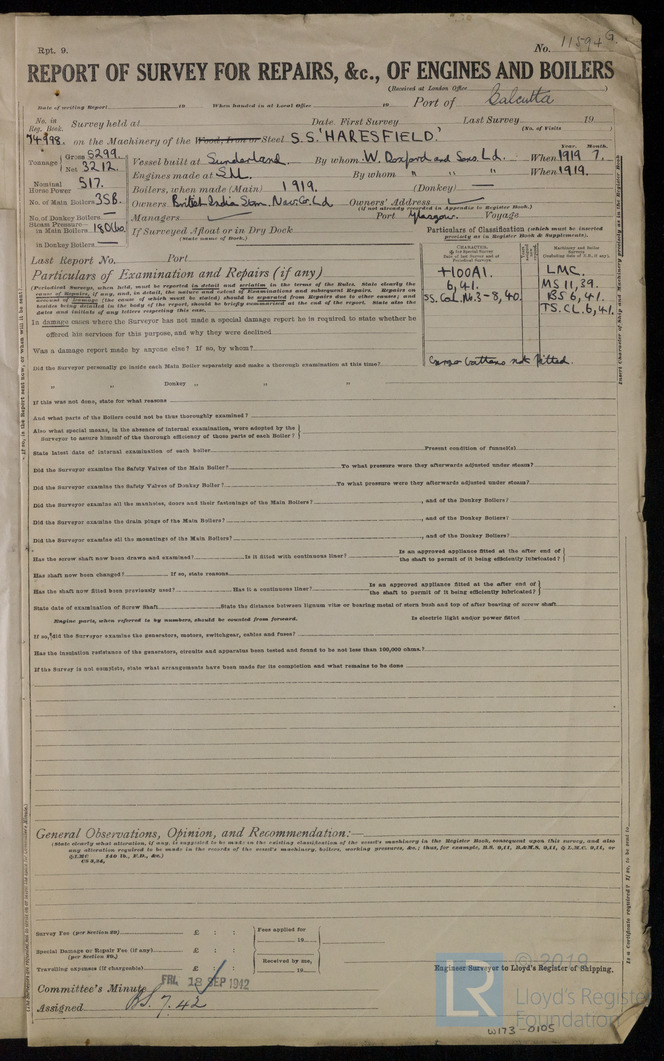 Rpt. 9. No. 11594 G.
REPORT OF SURVEY FOR REPAIRS, &c., OF ENGINES AND BOILERS
(Received at London Office )
Date of writing Report 19 When handed in at Local Office 19 Port of Calcutta
No. in Reg. Book. Survey held at Date First Survey Last Survey 19
(No. of Visits )
74998. on the Machinery of the Wood, Iron or Steel S.S. 'HARESFIELD.'
Tonnage Gross 5299. Net 3212. Vessel built at Sunderland. By whom W. Doxford and Sons. Ld. When 1919 Year. 7. Month.
Nominal Horse Power 517. Engines made at Sld. By whom " " " When 1919.
Boilers, when made (Main) 1919. (Donkey) —
No. of Main Boilers 3SB. Owners British India Stm. Nav. Co. Ld. Owners' Address
(if not already recorded in Appendix to Register Book.)
No. of Donkey Boilers — Managers Port Glasgow. Voyage
Steam Pressure in Main Boilers 180 lb. If Surveyed Afloat or in Dry Dock
(State name of Dock.)
in Donkey Boilers —
Particulars of Classification (which must be inserted precisely as in Register Book & Supplements).
Last Report No. Port
CHARACTER. * for Special Survey Date of last Survey and of Periodical Surveys.
Machinery and Boiler Surveys (including date of N.B., if any).
+100A1.
6,41.
SS. Cal. No. 3-8,40.
LMC.
MS 11,39.
BS 6,41.
TS. CL. 6,41.
Cargo battens not fitted.
Particulars of Examination and Repairs (if any)
(Periodical Surveys, when held, must be reported in detail and seriatim in the terms of the Rules. State clearly the
cause of Repairs, if any, and, in detail, the nature and extent of Examinations and subsequent Repairs. Repairs on
account of Damage (the cause of which must be stated) should be separated from Repairs due to other causes; and
besides being detailed in the body of the report, should be briefly summarised at the end of the report. State also the
dates and initials of any letters respecting this case.
In damage cases where the Surveyor has not made a special damage report he is required to state whether he
offered his services for this purpose, and why they were declined
Was a damage report made by anyone else? If so, by whom?
Did the Surveyor personally go inside each Main Boiler separately and make a thorough examination at this time?
" " Donkey " " "
If this was not done, state for what reasons
And what parts of the Boilers could not be thus thoroughly examined?
Also what special means, in the absence of internal examination, were adopted by the
Surveyor to assure himself of the thorough efficiency of those parts of each Boiler?
State latest date of internal examination of each boiler Present condition of funnel(s)
Did the Surveyor examine the Safety Valves of the Main Boiler? To what pressure were they afterwards adjusted under steam?
Did the Surveyor examine the Safety Valves of Donkey Boiler? To what pressure were they afterwards adjusted under steam?
Did the Surveyor examine all the manholes, doors and their fastenings of the Main Boilers? , and of the Donkey Boilers?
Did the Surveyor examine the drain plugs of the Main Boilers? , and of the Donkey Boilers?
Did the Surveyor examine all the mountings of the Main Boilers? , and of the Donkey Boilers?
Has the screw shaft now been drawn and examined? Is it fitted with continuous liner? Is an approved appliance fitted at the after end of the shaft to permit of it being efficiently lubricated?
Has shaft now been changed? If so, state reasons
Has the shaft now fitted been previously used? Has it a continuous liner? Is an approved appliance fitted at the after end of the shaft to permit of it being efficiently lubricated?
State date of examination of Screw Shaft State the distance between lignum vitæ or bearing metal of stern bush and top of after bearing of screw shaft
Engine parts, when referred to by numbers, should be counted from forward. Is electric light and/or power fitted
If so, did the Surveyor examine the generators, motors, switchgear, cables and fuses?
Has the insulation resistance of the generators, circuits and apparatus been tested and found to be not less than 100,000 ohms?
If the Survey is not complete, state what arrangements have been made for its completion and what remains to be done
General Observations, Opinion, and Recommendation:—
(State clearly what alteration, if any, is suggested to be made in the existing classification of the vessel's machinery in the Register Book, consequent upon this survey, and also
any alteration required to be made in the records of the vessel's machinery, boilers, working pressures, &c.; thus, for example, B.S. 9,11, B.&M.S. 9,11, L.M.C. 9,11, or
LMC 140 lb., F.D., &c.)
CS 3,34,
Survey Fee (per Section 29) £ : : Fees applied for
19
Special Damage or Repair Fee (if any) (per Section 29.) £ : :
Received by me,
Travelling expenses (if chargeable) £ : : 19
Engineer Surveyor to Lloyd's Register of Shipping.
Committee's Minute FRI. 18 SEP 1942
Assigned BS. 7.42
© 2019
LR
Lloyd's Register
Foundation
W173-0105